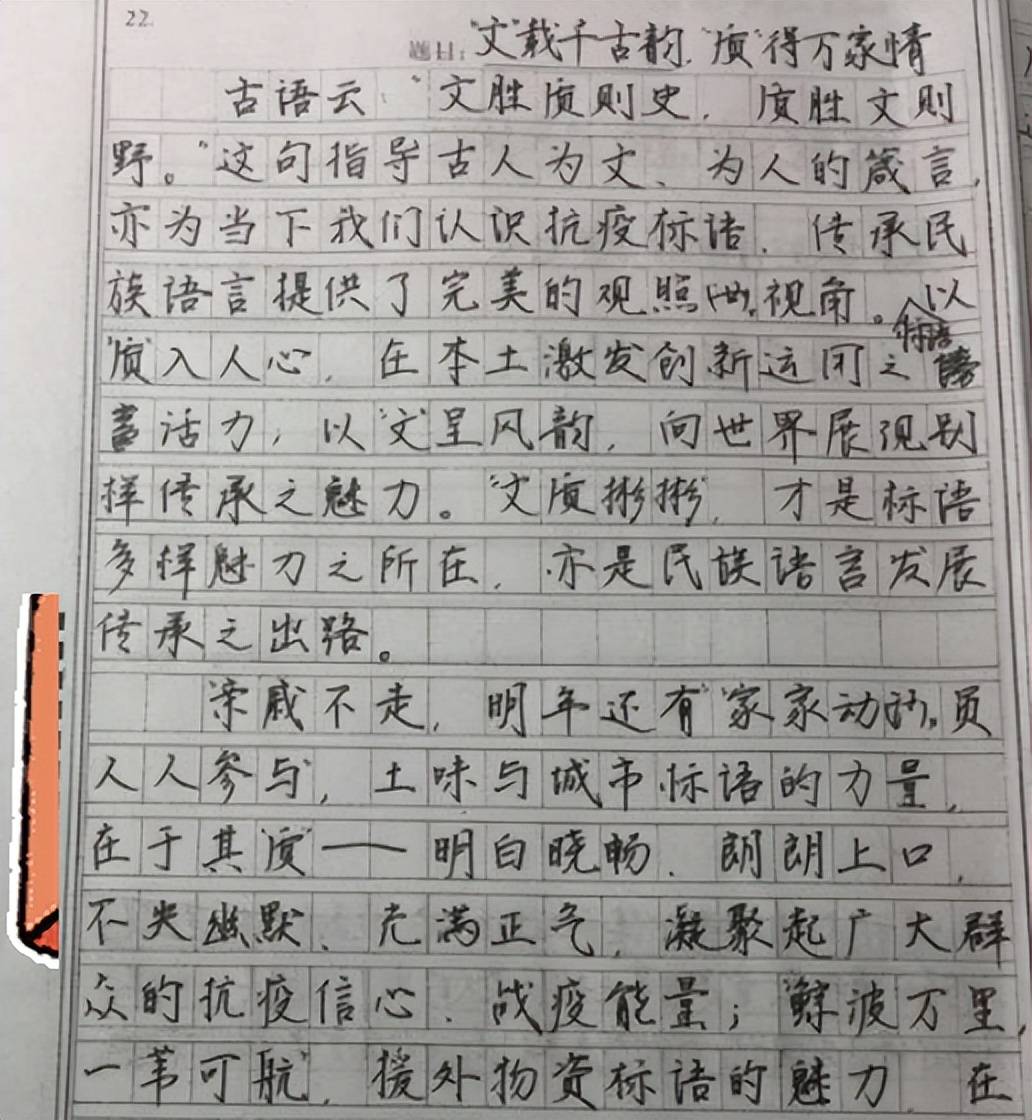 22.
题目：“文”载千古韵，“质”得万家情
古语云“文胜质则史，质胜文则
野。”这句指导古人为文、为人的箴言，
亦为当下我们认识抗疫标语、传承民
族语言提供了完美的观照视角。以
“质”入人心，在本土激发创新运闭之标语
活力，以“文”呈风韵，向世界展现别
样传承之魅力。“文质彬彬”，才是标语
多样魅力之所在，亦是民族语言发展
传承之出路。
“亲戚不走，明年还有”“家家动员
人人参与”，土味与城市标语的力量，
在于其“质”——明白晓畅、朗朗上口，
不失幽默、充满正气，凝聚起广大群
众的抗疫信心、战疫能量；“鲸波万里，
一苇可航”，援外物资标语的魅力，在